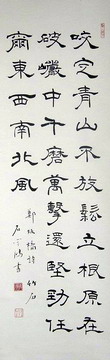 咬定青山不放鬆立根原在
破巖中千磨萬擊還堅勁任
爾東西南北風
鄭板橋詩 竹石